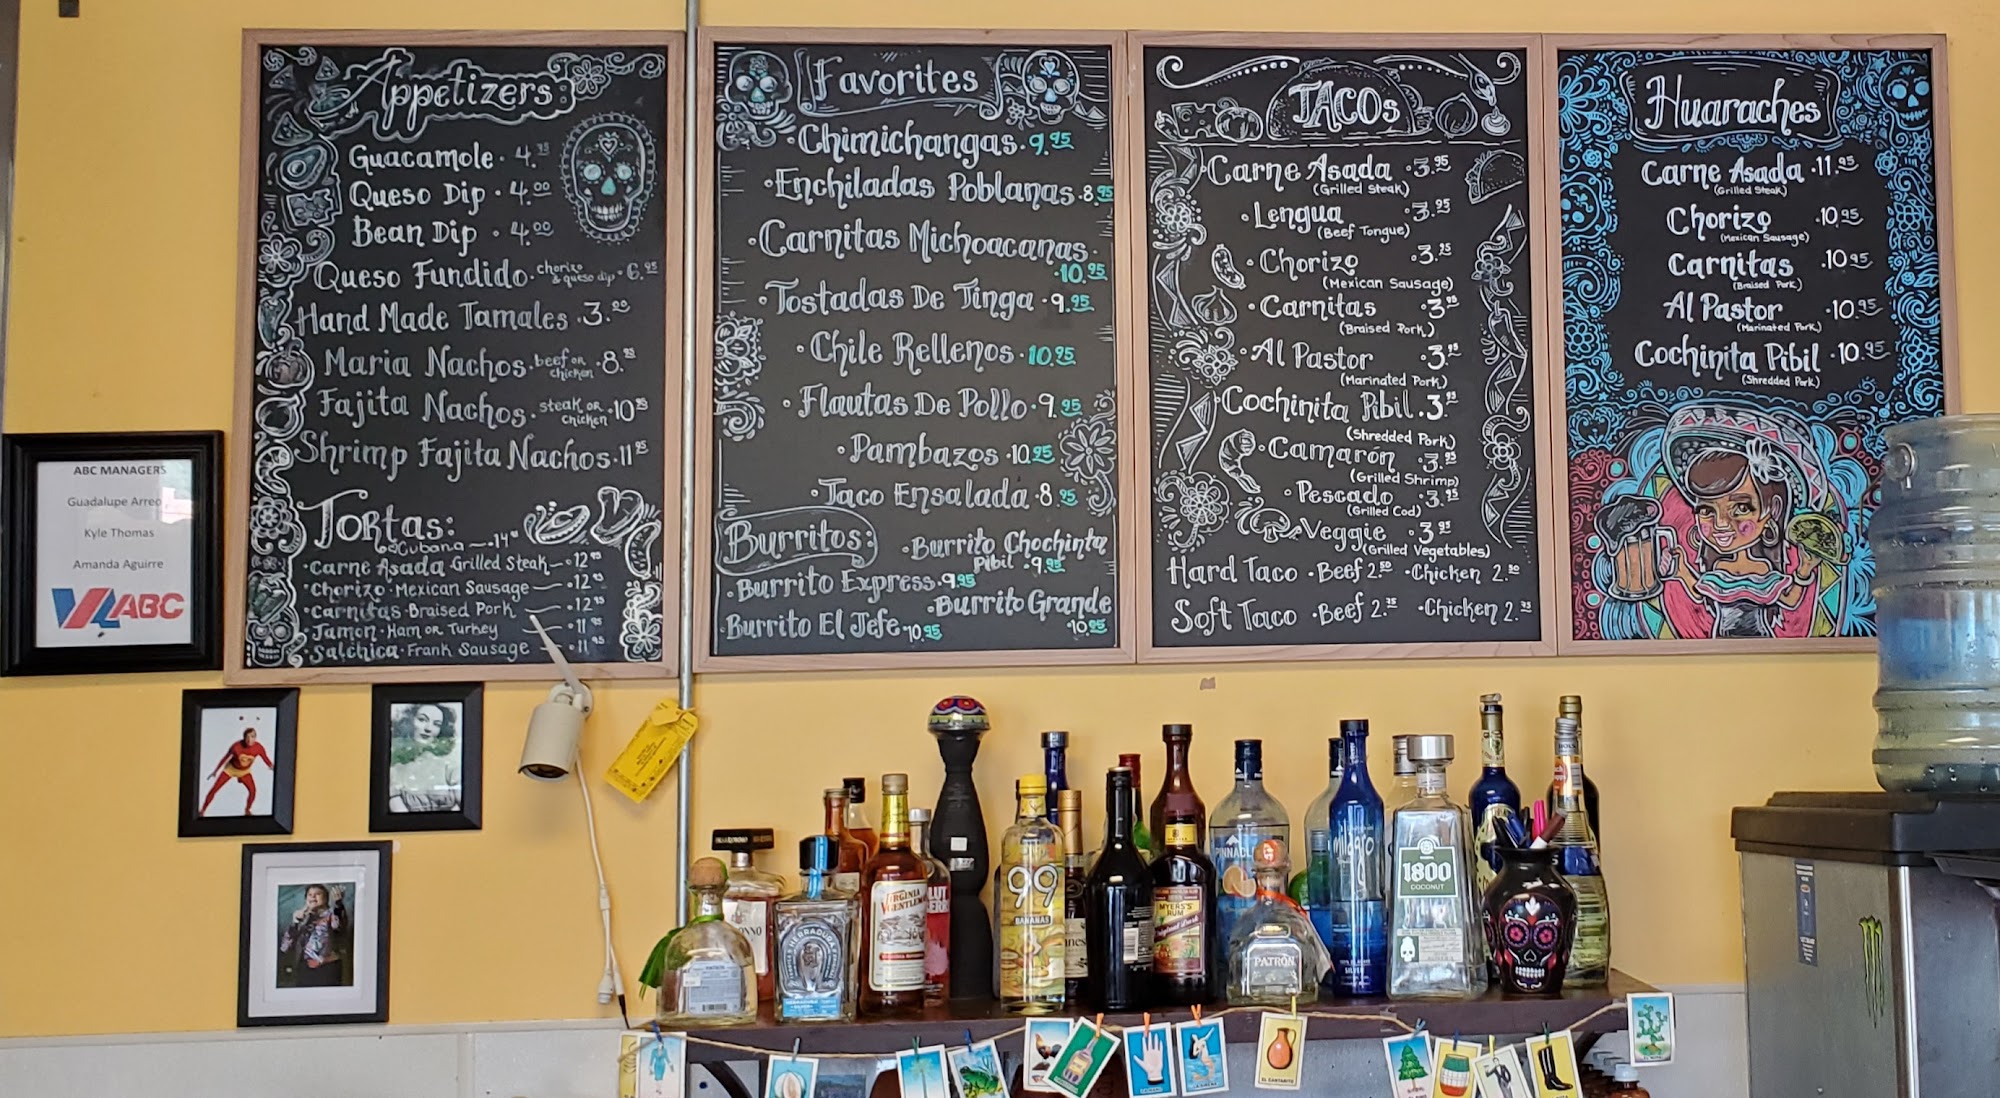 Appetizers
Guacamole · 4.
Queso Dip · 4.00
Bean Dip · 4.00
Queso Fundido · chorizo & queso dip · 6.95
Hand Made Tamales · 3.00
Maria Nachos · beef or chicken · 8.
Fajita Nachos · steak or chicken · 10.
Shrimp Fajita Nachos · 11.95
Tortas:
Cubana — 14.
· Carne Asada Grilled Steak — · 12.95
· Chorizo · Mexican Sausage — · 12.95
· Carnitas · Braised Pork — · 12.95
· Jamon · Ham or Turkey · 11.95
· Salchica · Frank Sausage — · 11.95
Favorites
· Chimichangas · 9.95
· Enchiladas Poblanas · 8.95
· Carnitas Michoacanas ·
· 10.95
· Tostadas De Tinga · 9.95
· Chile Rellenos · 10.95
· Flautas De Pollo · 9.95
· Pambazos · 10.95
· Taco Ensalada · 8.95
Burritos:
· Burrito Chochinta
Pibil · 9.95
· Burrito Express · 9.95
· Burrito Grande
· 10.95
· Burrito El Jefe · 10.95
TACOs
· Carne Asada · 3.95
(Grilled Steak)
· Lengua · 3.95
(Beef Tongue)
· Chorizo · 3.95
(Mexican Sausage)
· Carnitas · 3.95
(Braised Pork)
· Al Pastor · 3.95
(Marinated Pork)
· Cochinita Pibil · 3.95
(Shredded Pork)
· Camarón · 3.95
(Grilled Shrimp)
· Pescado · 3.95
(Grilled Cod)
· Veggie · 3.95
(Grilled Vegetables)
Hard Taco · Beef 2.50 · Chicken 2.50
Soft Taco · Beef 2.75 · Chicken 2.75
Huaraches
Carne Asada · 11.95
(Grilled Steak)
Chorizo · 10.95
(Mexican Sausage)
Carnitas · 10.95
(Braised Pork)
Al Pastor · 10.95
(Marinated Pork)
Cochinita Pibil · 10.95
(Shredded Pork)
ABC MANAGERS
Guadalupe Arreo
Kyle Thomas
Amanda Aguirre
ABC
VIRGINIA
GENTLEMAN
HERRADURA
99
BANANAS
MYERS'S
RUM
PINNACLE
PATRÓN
milagro
SILVER
1800
COCONUT
EL CANTARITO